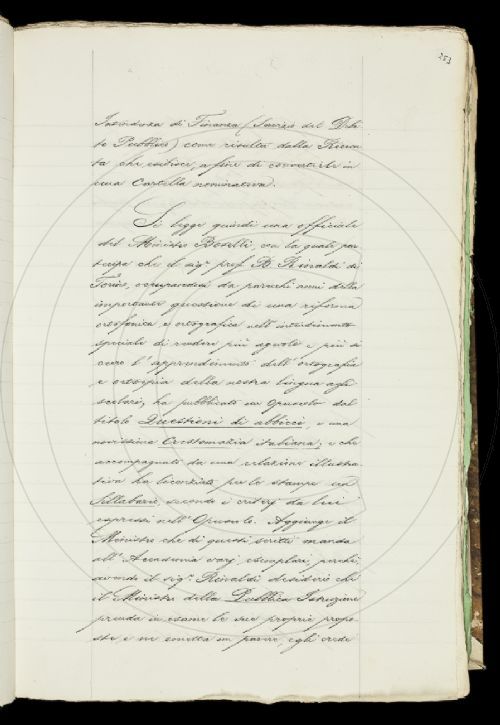 253
Intendenza di Finanza (Servizio del Debi-
to Pubblico) come risulta dalla Ricevu-
ta che esibisce, a fine di convertirle in
una Cartella nominativa.
Si legge quindi una officiale
del Ministro Boselli, con la quale par-
tecipa che il sig.r prof. B. Rinaldi di
Torino, occupandosi da parecchi anni della
importante questione di una riforma
ortofonica e ortografica nell'intendimento
speciale di rendere più agevole e più si-
curo l'apprendimento dell'ortografia
e ortoepia della nostra lingua agli
scolari, ha pubblicato un Opuscolo dal
titolo Questioni di abbicci, e una
novissima Crestomazia italiana; e che
accompagnato da una relazione illustra-
tiva ha licenziato per le stampe un
Sillabario secondo i criterj da lui
espressi nell'Opuscolo. Aggiunge il
Ministro che di questi scritti manda
all'Accademia varj esemplari, perchè
avendo il sig.r Rinaldi desiderio che
il Ministro della Pubblica Istruzione
prenda in esame le sue proprie propo-
ste e ne emetta un parere, egli crede